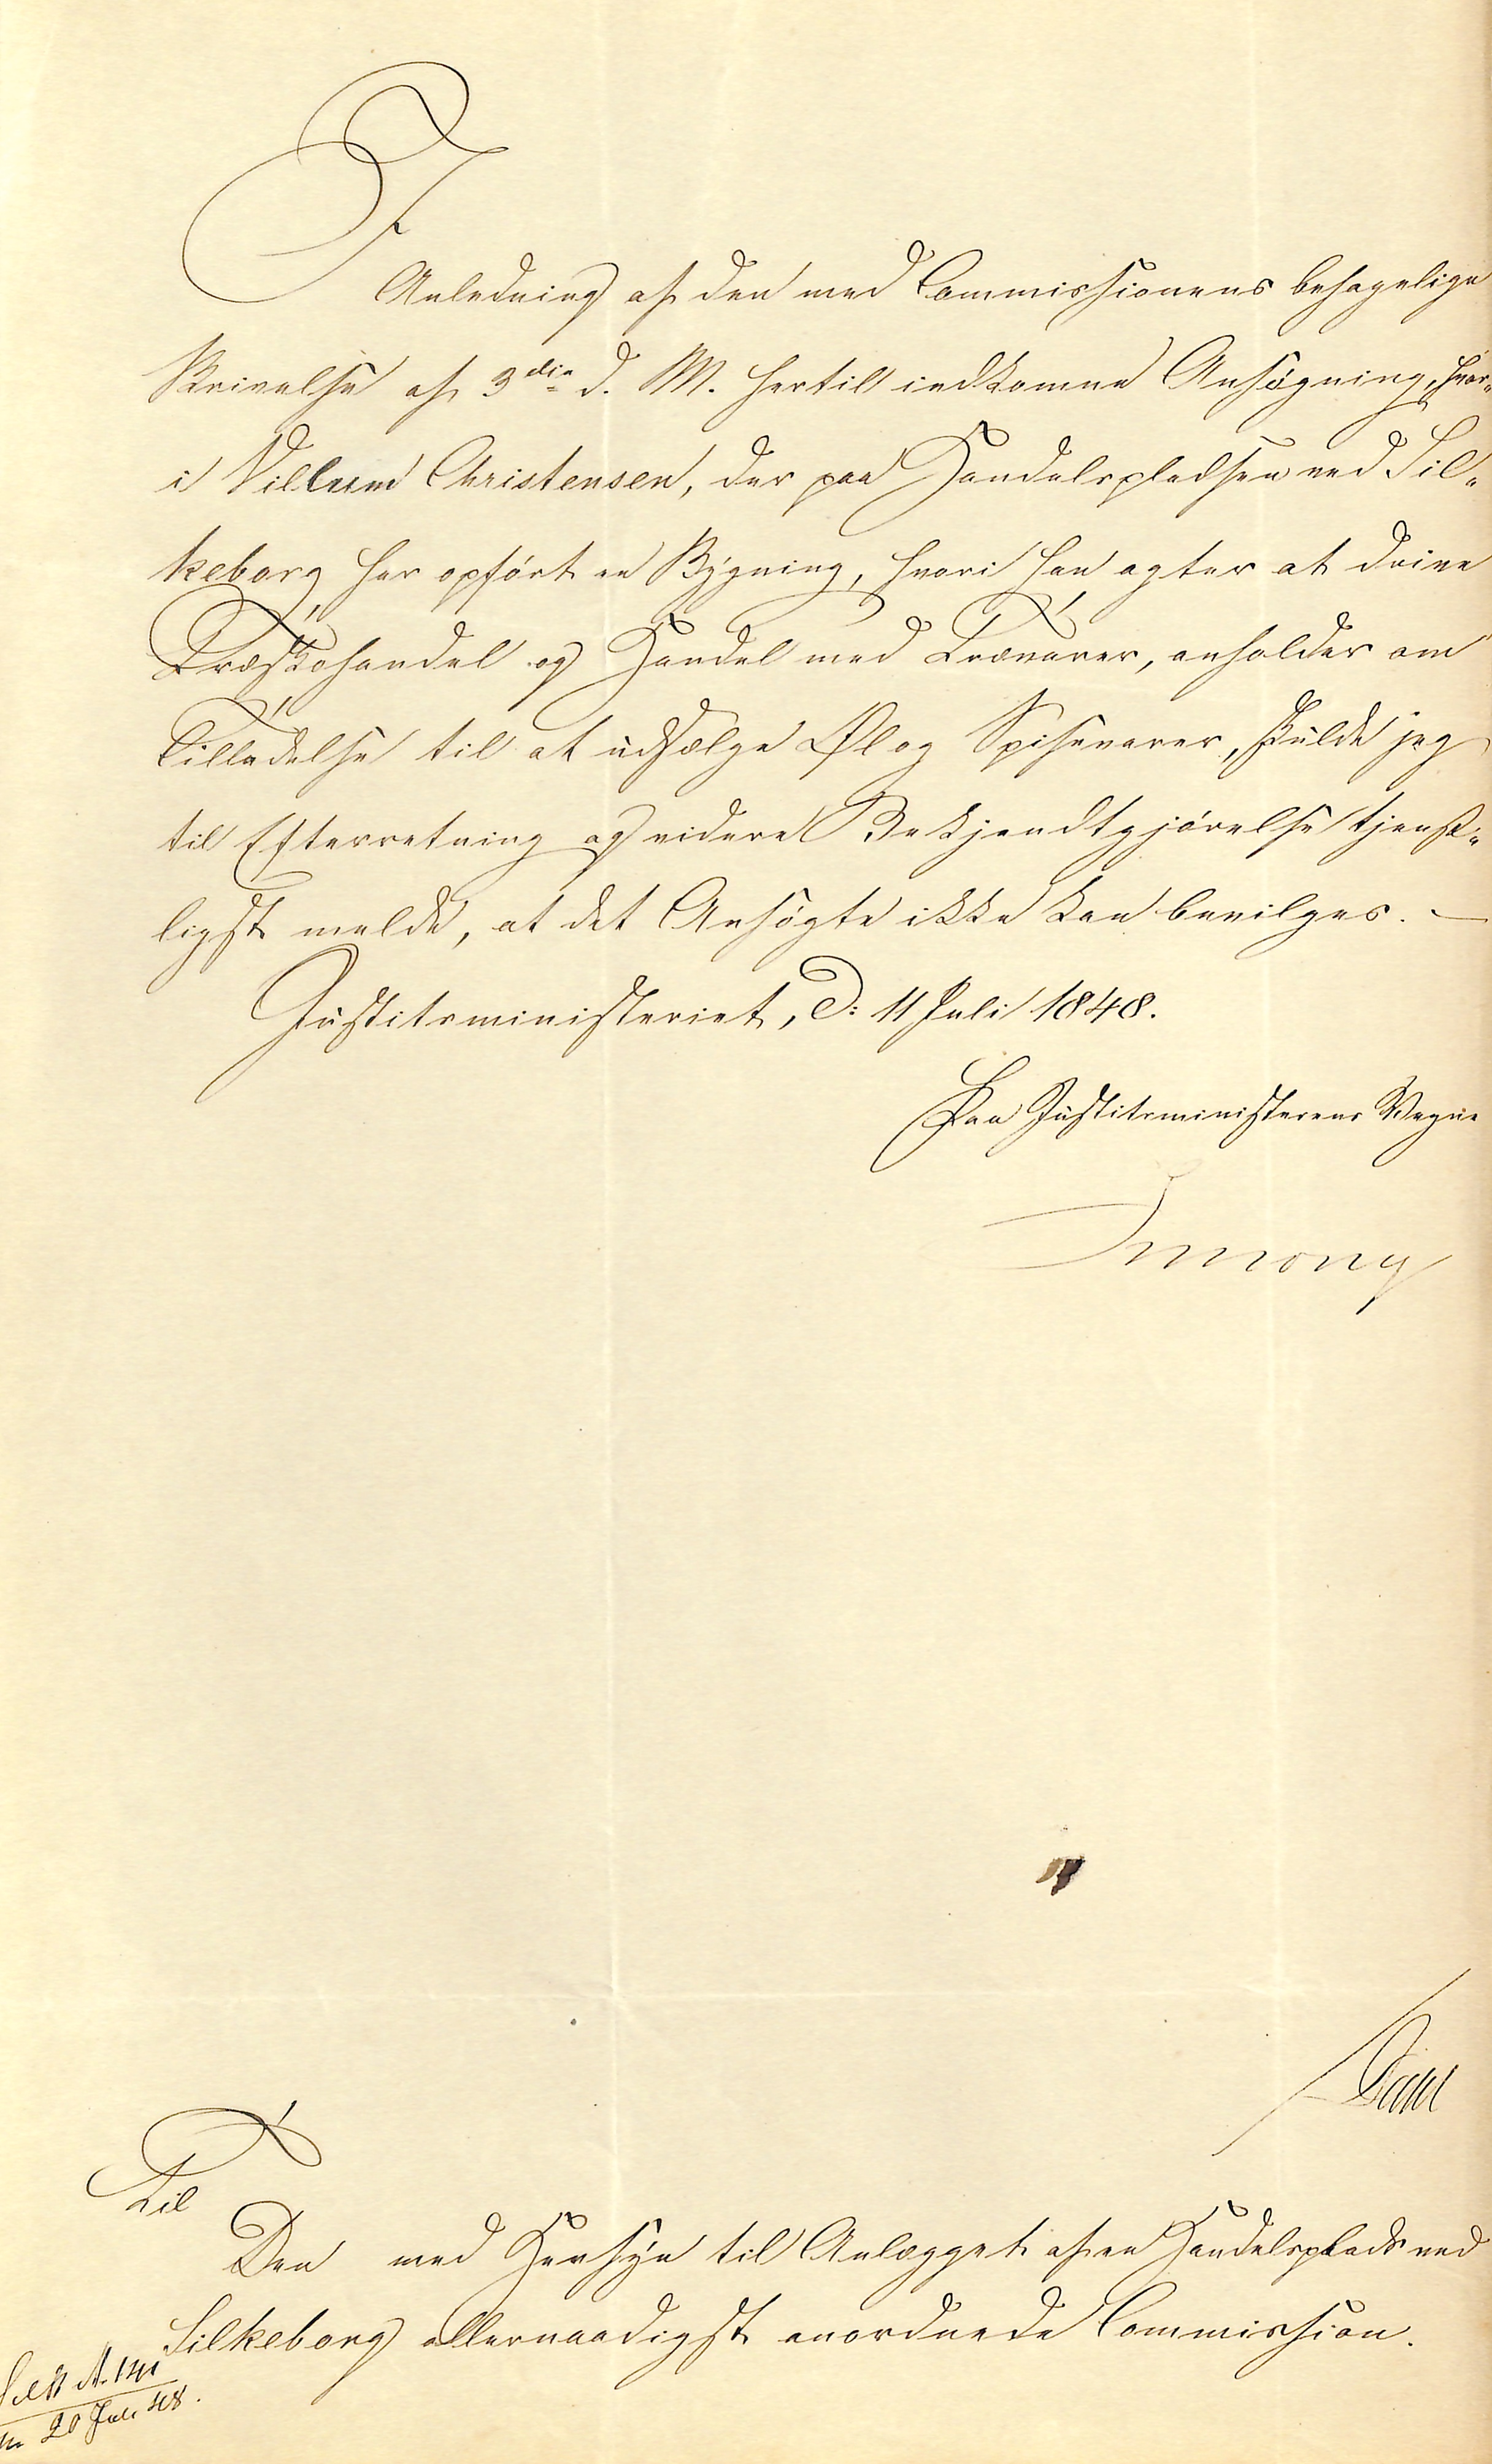 I
Anledning af den med Commissionens behagelige
Skrivelse af 3die d. M. hertil indkomne Ansøgning, hvor-
i Villum Christensen, der paa Handelspladsen ved Sil-
keborg har opført en Bygning, hvori han agter at drive
Træskohandel og Handel med Trævarer, anholder om
Tilladelse til at udsælge Øl og Spisevarer, skulde jeg
til Efterretning og videre Bekjendtgjørelse tjenst-
ligst melde, at det Ansøgte ikke kan bevilges. —
Justitsministeriet, D: 11 Juli 1848.
Paa Justitsministerens Vegne
Til
Den med Hensyn til Anlægget af en Handelsplads ved
Silkeborg allernaadigst anordnede Commission.
20 Juli 48.